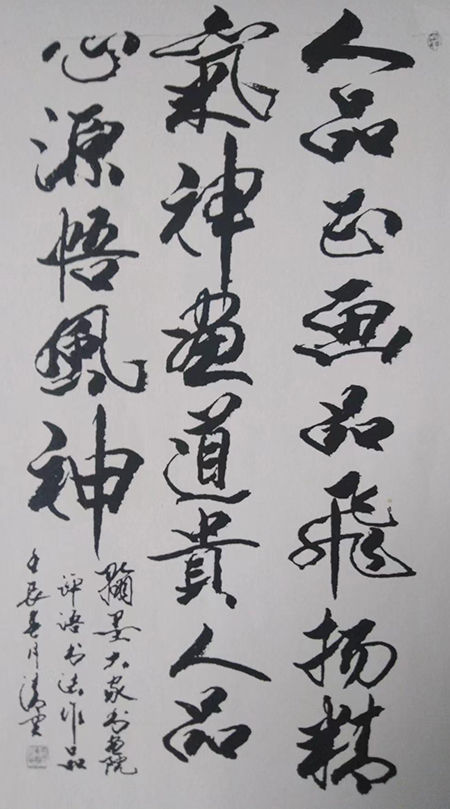 人品正画品飛扬精
氣神畫道貴人品
心源悟風神
翰墨大家书画院
评语书法作品
壬辰春月